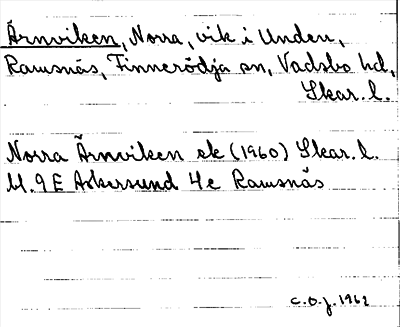 Ärnviken, Norra, vik i Unden,
Ramsnäs, Finnerödja sn, Vadsbo hd,
Skar. l.
Norra Ärnviken ek (1960) Skar. l.
Bl. 9E Askersund 4e Ramsnäs
C.O.J. 1962